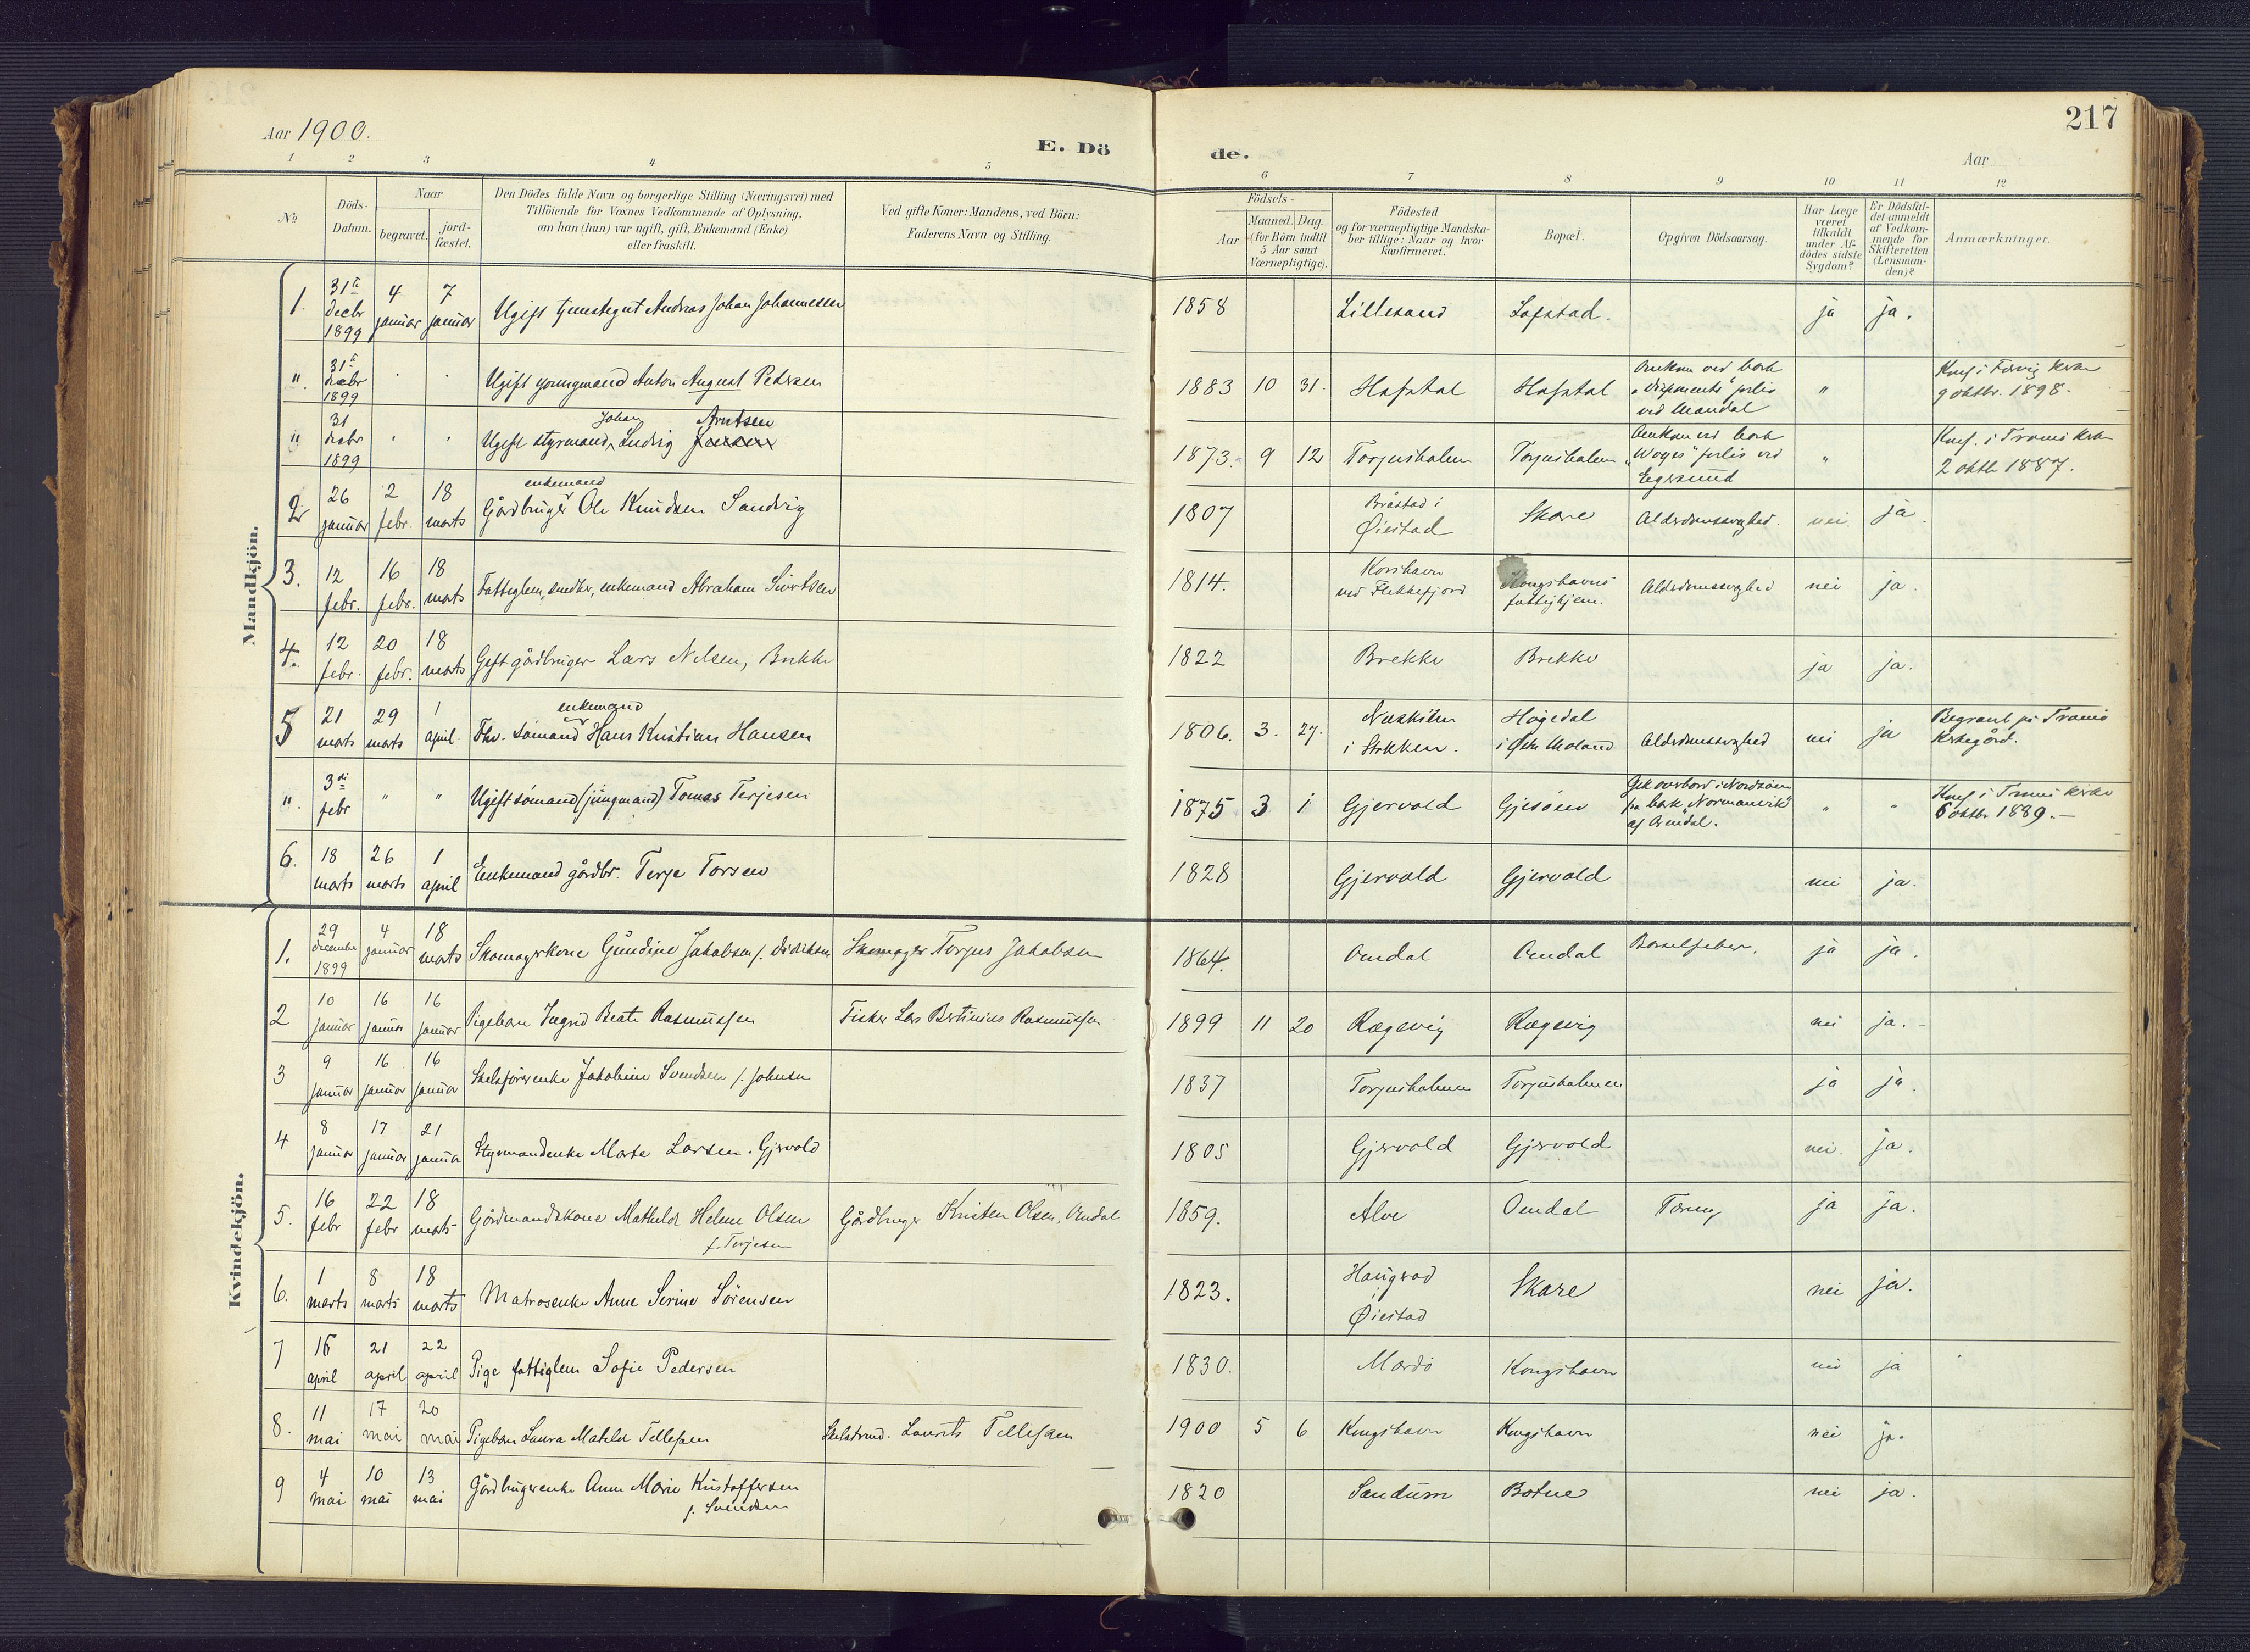 217
Aar 1900.
E. Dö de.
Aar
1 2 3 4 5 6 7 8 9 10 11 12
No
Döds-Datum.
Naar
begravet.
jord-fæstet.
Den Dödes fulde Navn og borgerlige Stilling (Næringsvei) med
Tilföiende for Voxnes Vedkommende af Oplysning,
om han (hun) var ugift, gift, Enkemand (Enke)
eller fraskilt.
Ved gifte Koner: Mandens, ved Börn:
Faderens Navn og Stilling.
Födsels-
Aar
Maaned. Dag.
(for Börn indtil
5 Aar samt
Værnepligtige).
Födested
og for værnepligtige Mandska-
ber tillige: Naar og hvor
Konfirmeret.
Bopæl.
Opgiven Dödsaarsag.
Har Læge
været
tilkaldt
under Af-
dödes sidste
Sygdom?
Er Dödsfal-
det anmeldt
af Vedkom-
mende for
Skifteretten
(Lensman-
den)?
Anmærkninger.
Mandkjön.
1. 31te decbr 1899 4 januar 7 januar Ugift Andreas Johan Johannessen 1858 Lillesand Lofstad. ja ja.
". 31te decbr 1899 Ugift youngmand Anton August Petersen 1883 10 31. Hofstal Hofstal Omkom ved bark forlis ved Mandal " Konf. i kirke 9 oktbr. 1898.
" 31 decbr 1899 Ugift styrmand Johan Ludvig Arntsen 1873. 9 12 Torjusholm Torjusholm Omkom ved bark forlis ved Egersund " Konf. i Tromö kirke 2 oktb 1887.
2 26 januar 2 febr. 18 marts Gårdbruger enkemand Ole Knudsen Sandvig 1807 Bråstad i Øiestad Skare Alderdomssvaghed. nei ja.
3. 12 febr. 16 febr. 18 marts Fattiglem, enkemand Abraham Sivertsen 1814. Korshavn ved Flekkefjord Kongshavns fattighjem. Alderdomssvaghed nei ja.
4. 12 febr. 20 febr. 18 marts Gift gårdbruger Lars Nilsen, Brekke 1822 Brekke Brekke ja ja.
5 21 marts 29 marts 1 april. Fhv. sömand enkemand Hans Kristian Hansen 1806. 3. 27. Neskilen i Stokken. Högedal i Østre Moland Alderdomssvaghed nei ja Begravet på Tromö kirkegård.
". 3di febr " " Ugift sömand (jungmand) Tomas Terjesen 1875 3 1 Gjervold Gjesöen Gik overbord i Nordsöen fra bark "Normanvik" af Arendal. " " Konf. i Tromö kirke 6 oktbr 1889.—
6. 18 marts 26 marts 1 april Enkemand gårdbr. Terje Torsen 1828 Gjervold Gjervold nei ja.
Kvindekjön.
1. 29 december 1899 4 januar 18 marts Skomagerkone Gundine Jakobsen f. Didriksen Skomager Torjus Jakobsen 1864. Omdal Omdal Barselfeber. ja ja.
2 10 januar 16 januar 16 januar Pigebarn Ingrid Beate Rasmussen Fisker Lars Bertinius Rasmussen 1899 11 20 Rægevig Rægevig nei ja.
3 9 januar 16 januar 16 januar Jakobine Svendsen f. Johnsen 1837 Torjusholmen Torjusholmen ja ja.
4 8 januar 17 januar 21 januar Styrmandenke Marte Larsen. Gjervold 1805 Gjervold Gjervold nei. ja.
5. 16 febr 22 febr 18 marts Gårdmandskone Mathilde Helene Olsen f. Terjesen Gårdbruger Kristen Olsen, Omdal 1859. Alve Omdal Tæring ja ja.
6. 1 marts 8 marts 18 marts Matrosenke Anne Serine Sörensen 1823. Øiestad Skare nei ja.
7 16 april 21 april 22 april Pige fattiglem Sofie Pedersen 1830. Mærdö Kongshavn nei ja
8. 11 mai 17 mai 20 mai Pigebarn Laura Matilde Tellefsen Laurits Tellefsen 1900 5 6 Kongshavn Kongshavn nei ja.
9 4 mai 10 mai 13 mai Gårdbrugerenke Anne Marie Kristoffersen f. Svendsen 1820 Sandum Botne nei ja.